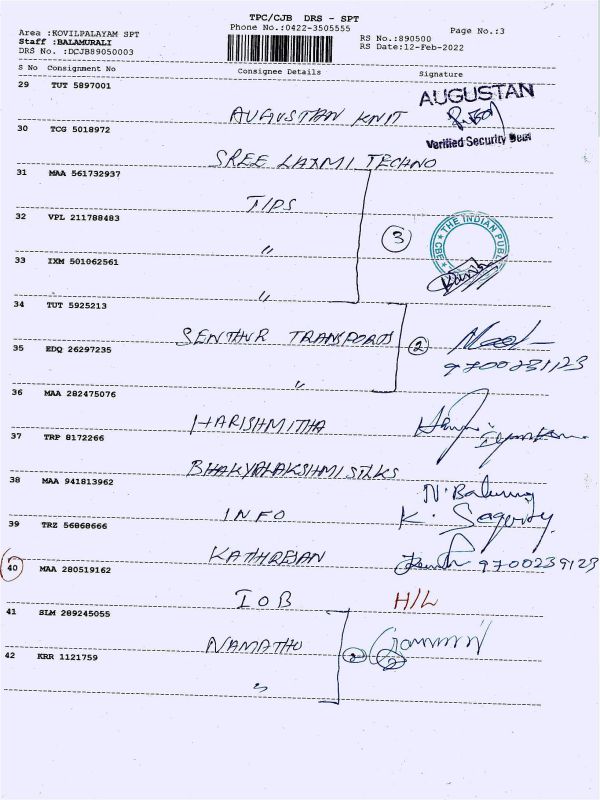 TPC/CJB DRS - SPT
Area :KOVILPALAYAM SPT
Phone No.:0422-3505555
Page No.:3
Staff :BALAMURALI
RS No.:890500
DRS No. :DCJB89050003
RS Date:12-Feb-2022
S No Consignment No Consignee Details Signature
29 TUT 5897001
AUGUSTAN KNIT
AUGUSTAN
Verified Security Dept
30 TCG 5018972
SREE LAXMI TECHNO
31 MAA 561732937
TIPS
32 VPL 211788483
"
3
THE INDIAN PUBL
CBE
33 IXM 501062561
"
34 TUT 5925213
SENTHUR TRANSPORTS
2
35 EDQ 26297235
"
9700231123
36 MAA 282475076
HARISHMITHA
37 TRP 8172266
BHAKYALAKSHMI SILKS
38 MAA 941813962
INFO
K.
39 TRZ 56868666
KATHRESAN
9700239123
40 MAA 280519162
IOB
H/L
41 SLM 289245055
NAMATHU
2
42 KRR 1121759
"